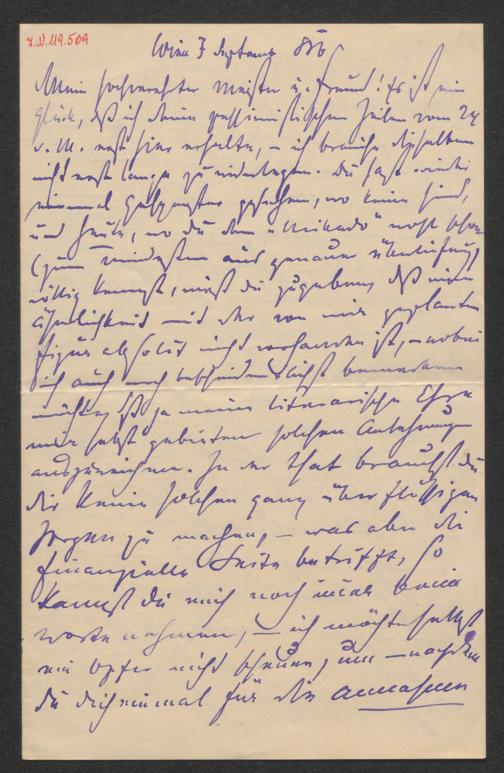 J.N. 119.509
Wien 7 September 886
Mein hochverehrter Meister u. Freund! Es ist ein
Glück, daß ich Deine pessimistischen Zeilen vom 24
v. M. erst hier erhalte, – ich brauche dieselben
nicht erst lange zu widerlegen. Du hast wieder
einmal Gespenster gesehen, wo keine sind,
und heute, wo du den "Mikado" wohl schon
(zum mindesten aus genauer Überlieferung)
völlig kennst, wirst du zugeben, daß eine
Ähnlichkeit mit der von mir geplanten
Figur absolut nicht vorhanden ist, – wobei
ich auch noch bescheidentlichst bemerken
möchte, daß ja meine literarische Ehre
mir selbst gebieten solchen Anlehnungen
auszuweichen. In der That brauchst du
dir keine solchen ganz überflüssigen
Sorgen zu machen, – was aber die
finanzielle Seite betrifft, so
kannst du mich noch immer beim
Worte nehmen, – ich möchte selbst
ein Opfer nicht scheuen, um – nachdem
du dich einmal für die Annahme